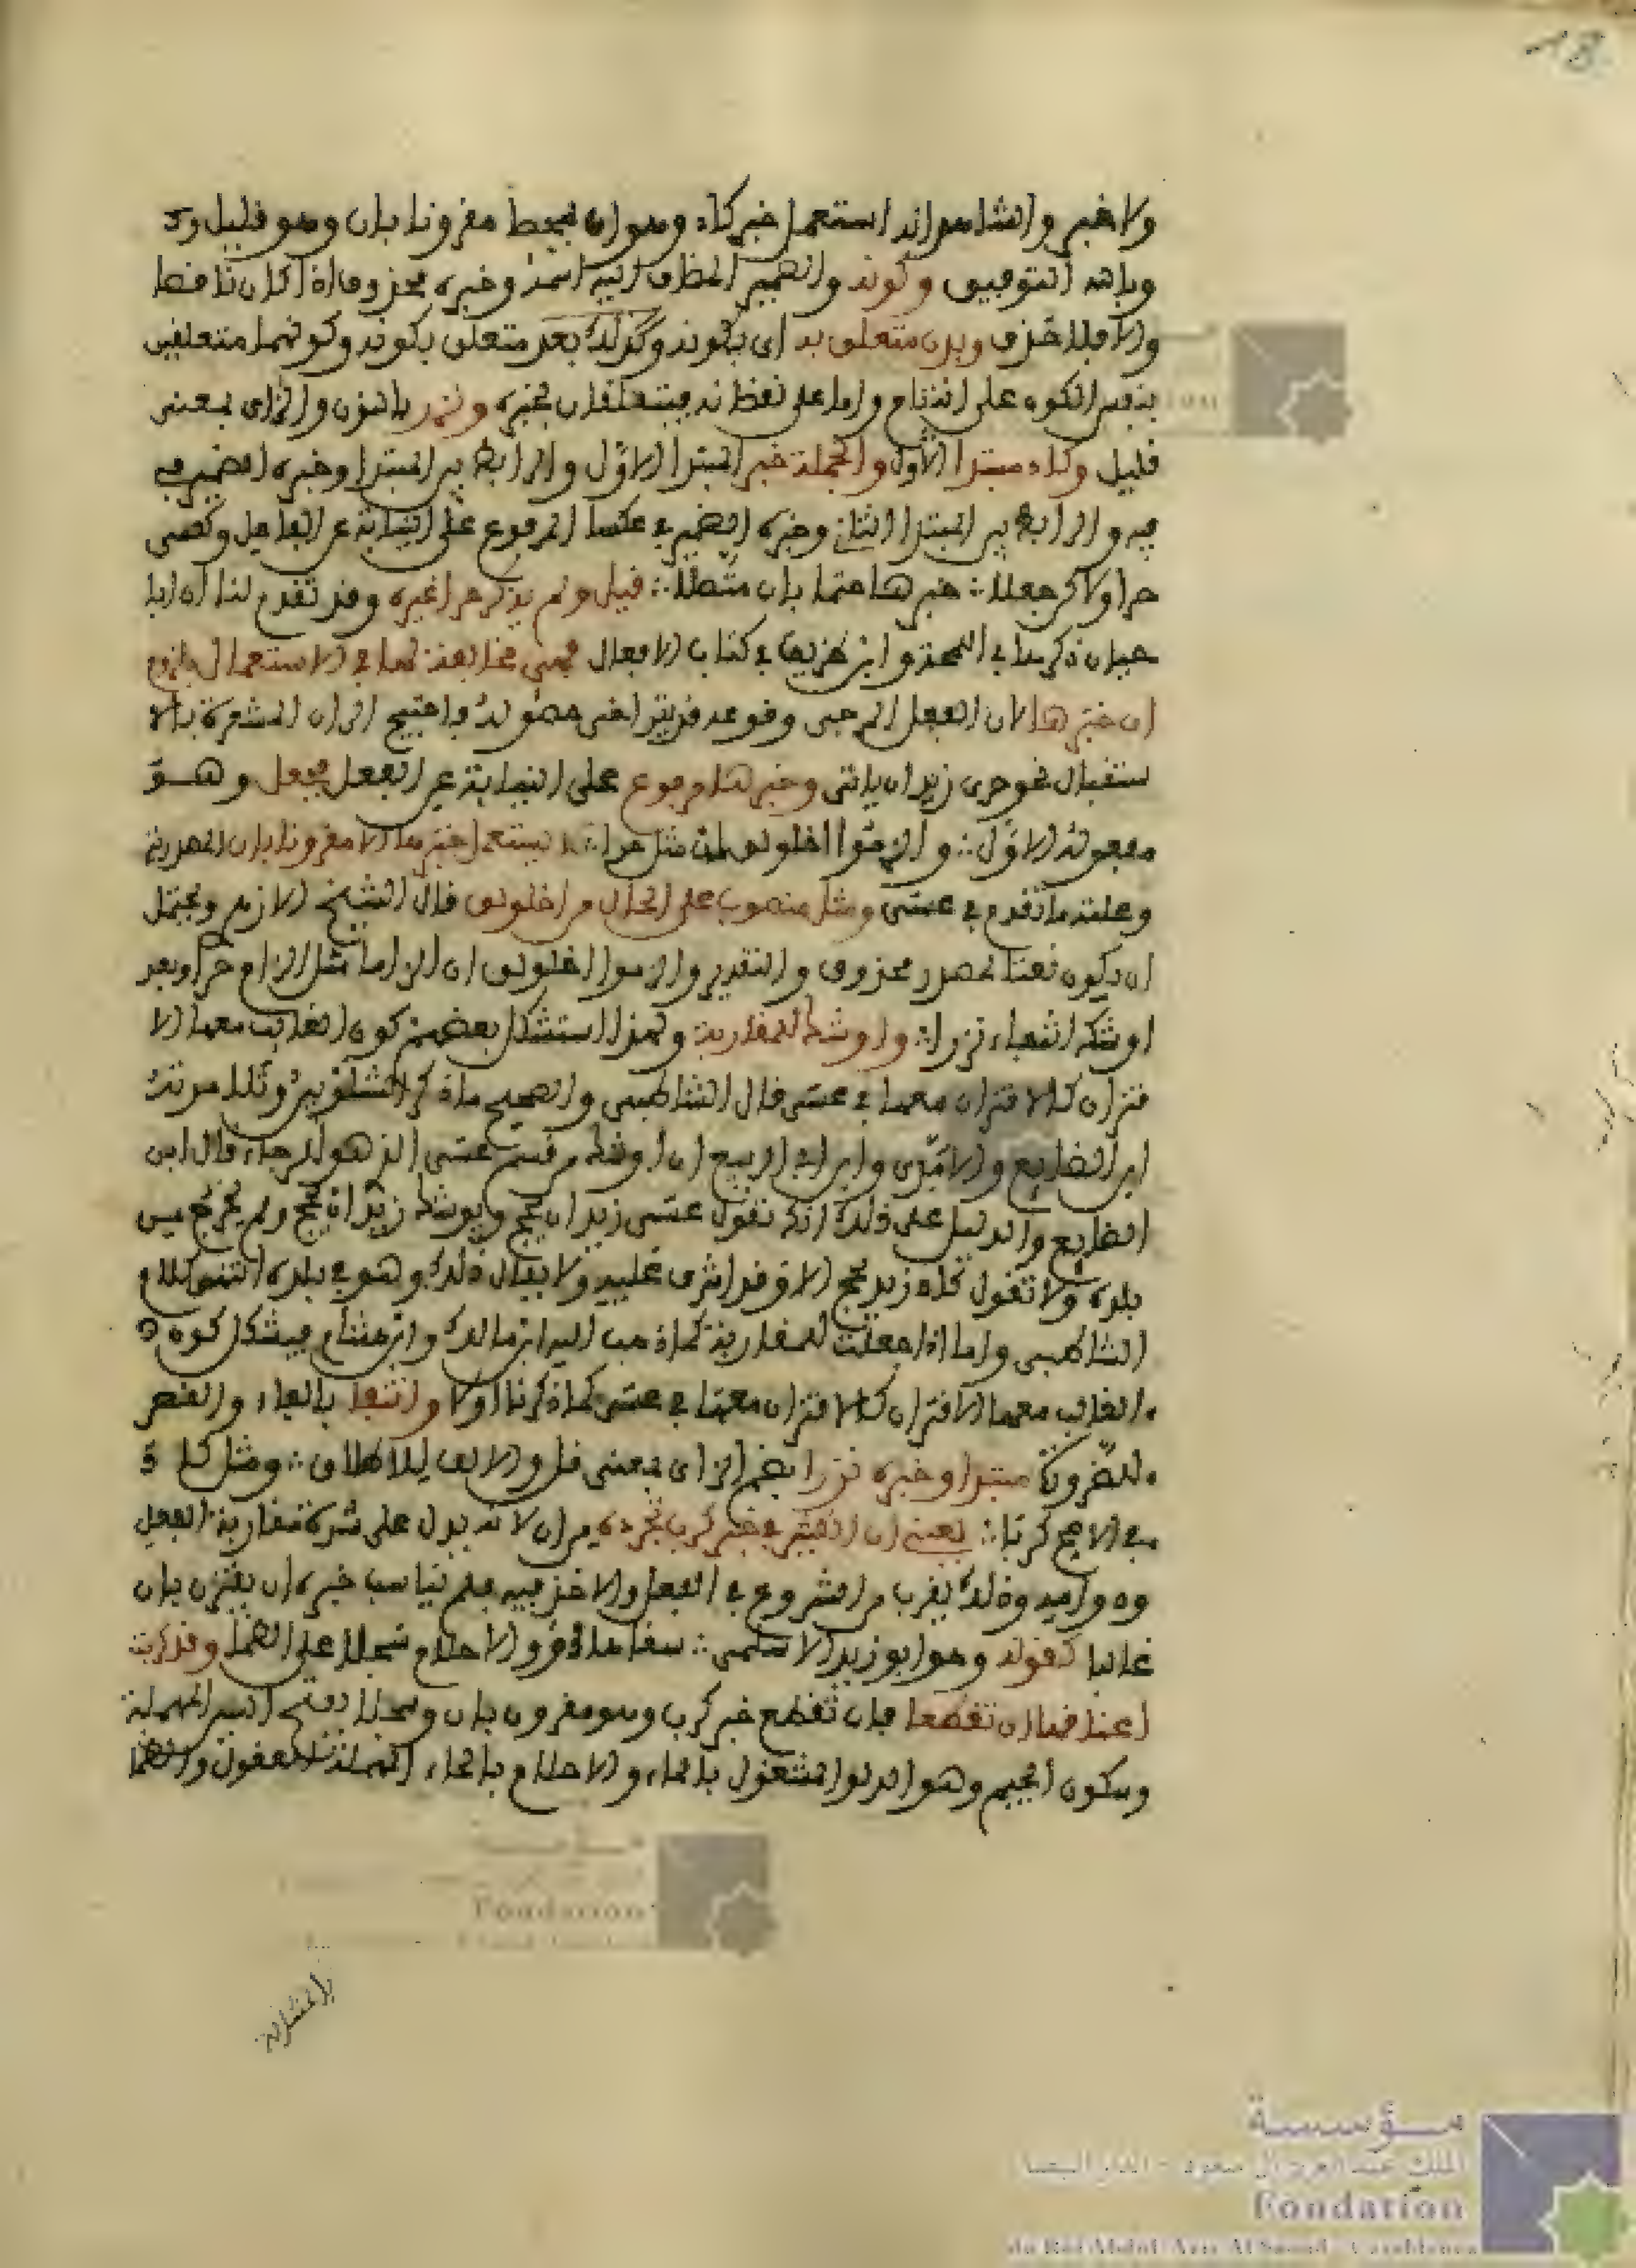 18
ولا خبر والشاهد انه استعمل خبر كاد وهو ان يمحط مقرونا بان وهو قليل و
وبالله التوفيق وكونه والضمير المضاف اليه اسمه وخبره محذوف اذا كان ناقصا
والا فلا حذف وبدون متعلق به اي بكونه وكذلك بعد متعلق بكونه وكونهما متعلقين
بنفس الكون على التمام واما على نقصانه فيتعلقان بخبره ونزر بالنون والزاي بمعنى
قليل وكاد مبتدا الاول والجملة خبر المبتدا الاول والرابط بين المبتدا وخبره الضمير في
فيه والرابط بين المبتدا الثاني وخبره الضمير في عكسا المرفوع على النيابة عن الفاعل وكعسى
حرا ولاكن جعلا ∴ خبرها حتما بان متصلا ∴ قيل ولم يذكر حرا غيره وقد تقدم لنا ان ابا
حيان ذكرها في اللمحة وابن طريف في كتاب الافعال فهي مخالفة لها في الاستعمال بلزوم
ان خبرها لان الفعل المرجى وقوعه قد يتراخى حصوله فاحتيج الى ان المشعرة بالا
ستقبال نحو حرى زيد ان ياتي وخبرها مرفوع على النيابة عن الفعل بجعل وهو
مفعوله الاول ∴ والزموا اخلولق ان مثل حرا ∴ يستعمل خبرها الا مقرونا بان المصدرية
وعلته ما تقدم في عسى ومثل منصوب على الحال من اخلولق قال الشيخ الازهري ويحتمل
ان يكون نعتا لمصدر محذوف والتقدير والزموا اخلولق ان الزاما مثل الزام حرا وبعد
اوشك انتفاء ان نزرا ∴ واوشك للمقاربة ولهذا استشكل بعضهم كون الغالب معها الا
قتران كالاقتران معها في عسى قال الشاطبي والصحيح ما ذكر الشلوبين وتلامذته
ابن الضايع والابذي وابن ابي الربيع ان اوشك من قسم عسى الذي هو للرجاء قال ابن
الضايع والدليل على ذلك انك تقول عسى زيد ان يحج ويوشك زيد ان يحج ولم يخرج من
بلده ولا تقول كاد زيد يحج الا وقد اشرف عليه ولا يقال ذلك وهو في بلده انتهى كلام
الشاطبي واما اذا جعلت للمقاربة كما ذهب اليه ابن مالك وابن هشام فيشكل كون
الغالب معها الاقتران كالاقتران معها في عسى كما ذكرنا اولا وانتفا بالفاء والقصر
للضرورة مبتدا وخبره نزرا بضم الزاي بمعنى قل والالف للاطلاق ∴ ومثل كاد
في الاصح كربا ∴ يعني ان الكثير في خبر كرب تجرده من ان لانه يدل على شدة مقاربة الفعل
وذلك يقرب من الشروع في الفعل والاخذ فيه فلم يناسب خبره ان يقترن بان
غالبا كقوله وهو ابو زيد الاسلمي ∴ سقاها ذوو الاحلام سجلا على الظما وقد كربت
اعناقها ان تقطعا فان تقطع خبر كرب وهو مقرون بان وسجلا بفتح السين المهملة
وسكون الجيم وهو الدلو المشغول بالماء والاحلام بالحاء المهملة العقول والظما
بالمشالة
مؤسسة
الملك عبد العزيز آل سعود - الدار البيضاء
Fondation
du Roi Abdul-Aziz Al Saoud - Casablanca